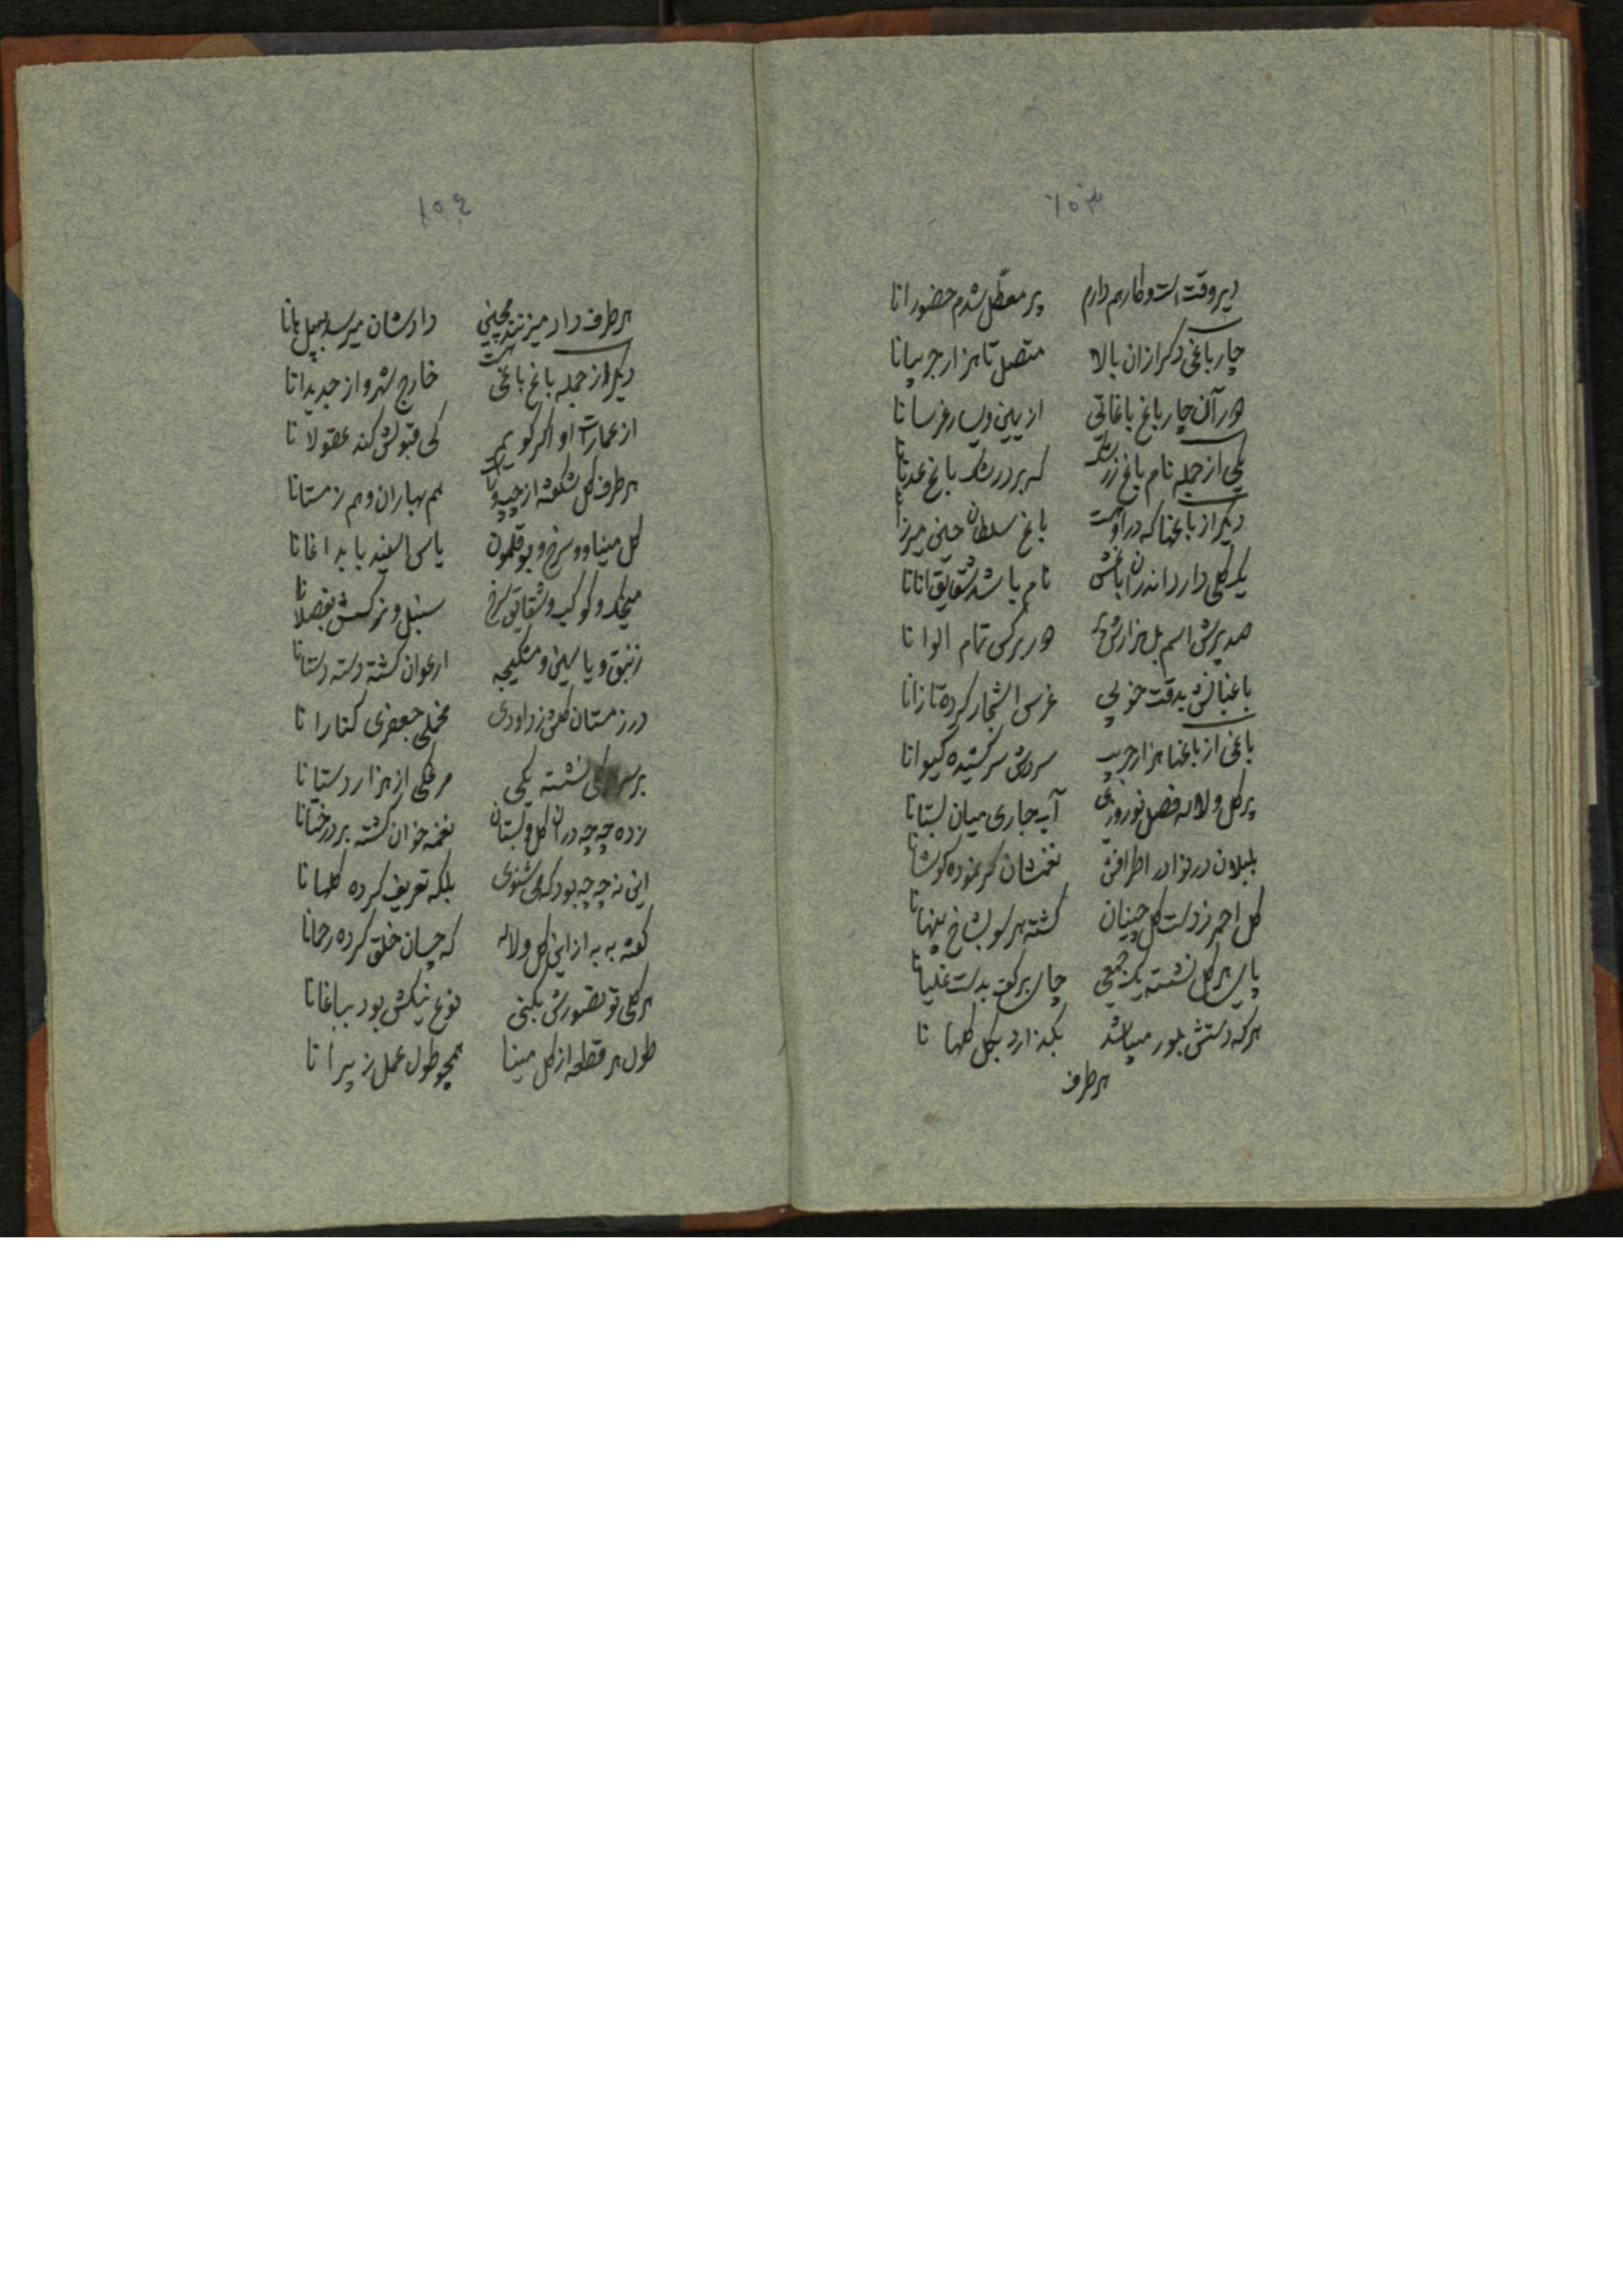 ۱۰۳
دیروقت است و کار هم دارم پر معطل شدم حضورانا
چارباغی دکر ازان بالا متصل تا هزار جریبانا
دور آن چارباغ باغاتی از یمین و یسار غرسانا
یکی از جمله نام باغ زرشک که برد رشک باغ عدنانا
دیکر از باغها که در او هست باغ سلطان حسین میرزانا
یک کلی دارد اندران باغش نام باشد شقایق انانا
صد پرش اسم بل هزارش دور برکس تمام الوانا
باغبانش بدقت خوبی غرس اشجار کرده تازانا
باغی از باغها هزار جریب سروش سر کشیده کیوانا
پر کل و لاله فصل نوروزی آب جاری میان بستانا
بلبلان در نوا در اطرافش نغمشان کر نموده کوشانا
کل احمر ز دست کل چینان کشته هر سو بشاخ پنهانا
پای هر کل نشسته یک جمعی چای بر کف بدست غلیانا
هر که دستش بلور میباشد بکذارد بکل کلهانا
هر طرف
۱۰٤
هر طرف داد میزنند بچینی دادشان میرسد بچل بانا
دیکر از جمله باغ باغی هست خارج شهر و از جدیدانا
از عمارت او اکر کویم کی قبولش کند عقولانا
هر طرف کل شکفته از چپ و راست هم بهاران و هم زمستانا
کل مینا و سرخ و بوقلمون یاس اسفید با بداغانا
میخک و کوکب و شقایق سرخ سنبل و نرکسش بفصلانا
زنبق و یاسمین و مشکیجه ارغوان کشته دسته دستانا
در زمستان کلش ز داودی مخملی جعفری کنارانا
بر سر کلی نشسته یکی مرغکی از هزار دستانا
زده چه چه دران کل و بستان نغمه خوان کشته بر درختانا
این نه چه چه بود که می شنوی بلکه تعریف کرده کلهانا
کفته به به از این کل و لاله که چسان خلق کرده رحمانا
هر کلی تو تصورش بکنی نوع نیکش بود بباغانا
طول هر قطعه از کل مینا همچو طول عمل ز پیرانا